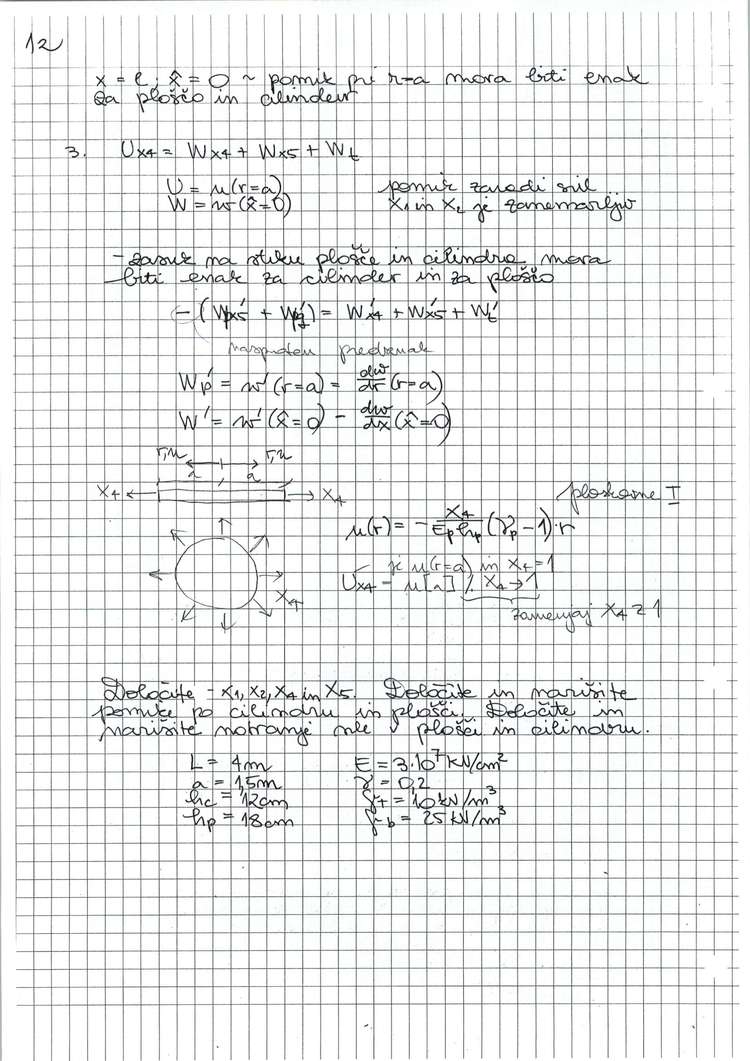 12
x = l ; x̂ = 0 ~ pomik pri r=a mora biti enak
za ploščo in cilinder
3. Ux4 = Wx4 + Wx5 + Wt
U = u(r=a) pomik zaradi sil
W = w(x̂=0) X1 in X2 je zanemarljiv
- zasuk na stiku plošče in cilindra mora
biti enak za cilinder in za ploščo
- (Wpx5' + Wpg') = Wx4' + Wx5' + Wt'
nasproten predznak
Wp' = w'(r=a) = dw/dr (r=a)
W' = w'(x̂=0) - dw/dx (x̂=0)
r,u r,u
a a
X4 X4
ploskovne I
u(r) = - X4/(Ep hp) (νp - 1)·r
je u(r=a) in X4=1
Ux4 - u[a] /. X4 → 1
X4
zamenjaj X4 z 1
Določite - X1, X2, X4 in X5. Določite in narišite
pomike po cilindru in plošči. Določite in
narišite notranje sile v plošči in cilindru.
L = 4m E = 3·10⁷ kN/cm²
a = 1,5m ν = 0,2
hc = 12cm γt = 10 kN/m³
hp = 18cm γb = 25 kN/m³